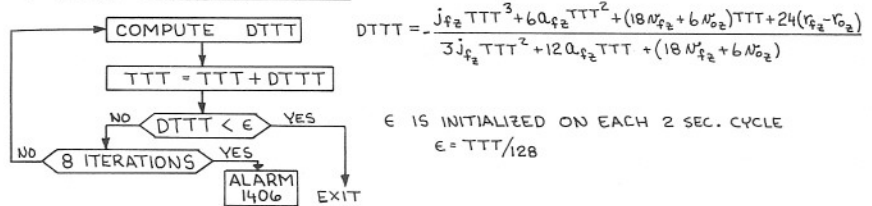 COMPUTE DTTT
TTT = TTT + DTTT
NO
DTTT < ε
YES
NO
8 ITERATIONS
YES
ALARM
1406
EXIT
DTTT = - (j_fz TTT³ + 6a_fz TTT² + (18v_fz + 6v_oz)TTT + 24(r_fz - r_oz)) / (3j_fz TTT² + 12a_fz TTT + (18v_fz + 6v_oz))
ε IS INITIALIZED ON EACH 2 SEC. CYCLE
ε = TTT/128